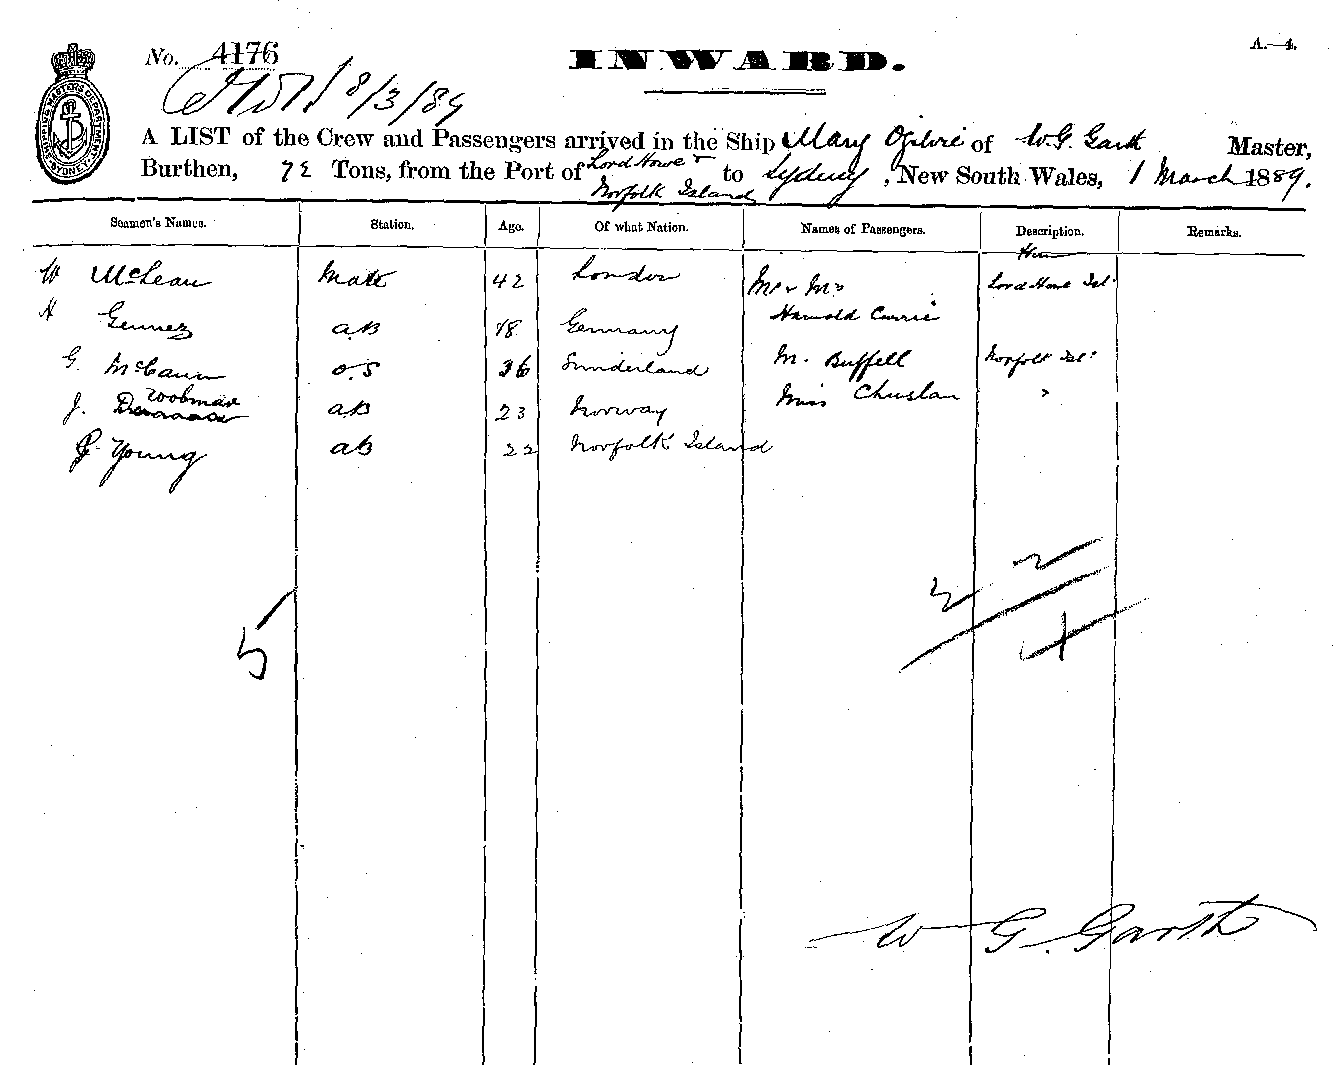 No. 4176
INWARD.
A.—4.
8/3/89
A LIST of the Crew and Passengers arrived in the Ship Mary Ogilvie of W.G. Garth Master,
Burthen, 72 Tons, from the Port of Lord Howe + Norfolk Island to Sydney, New South Wales, 1 March 1889.
SHIPPING MASTERS DEPARTMENT SYDNEY
Seamen's Names. Station. Age. Of what Nation. Names of Passengers. Description. Remarks.
W McLean Mate 42 London Mr & Mrs Lord Howe Isl.
Harold Currie
H Gennez AB 18 Germany
G. McCann O.S 36 Sunderland M. Buffell Norfolk Isl.
J. AB 23 Norway Miss "
Young AB 22 Norfolk Island
2
2
5
4
W G. Garth